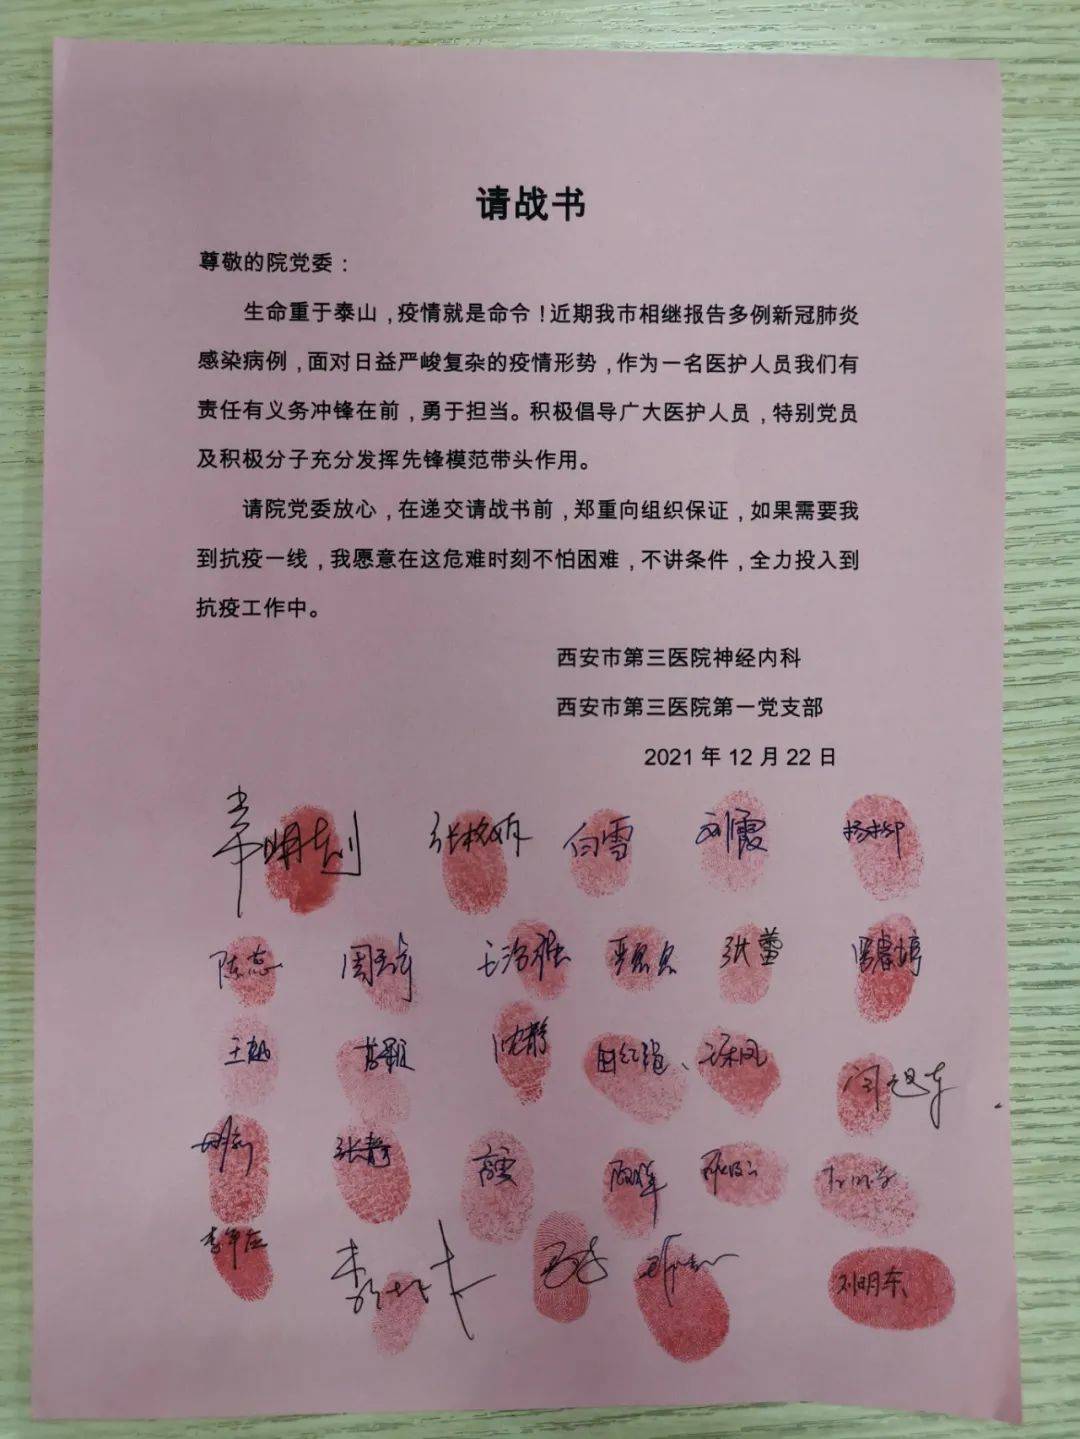 请战书
尊敬的院党委：
生命重于泰山，疫情就是命令！近期我市相继报告多例新冠肺炎
感染病例，面对日益严峻复杂的疫情形势，作为一名医护人员我们有
责任有义务冲锋在前，勇于担当。积极倡导广大医护人员，特别党员
及积极分子充分发挥先锋模范带头作用。
请院党委放心，在递交请战书前，郑重向组织保证，如果需要我
到抗疫一线，我愿意在这危难时刻不怕困难，不讲条件，全力投入到
抗疫工作中。
西安市第三医院神经内科
西安市第三医院第一党支部
2021 年 12 月 22 日
白雪 刘霞 杨柳
陈蕊 张蕾
沈静
张静
刘明东